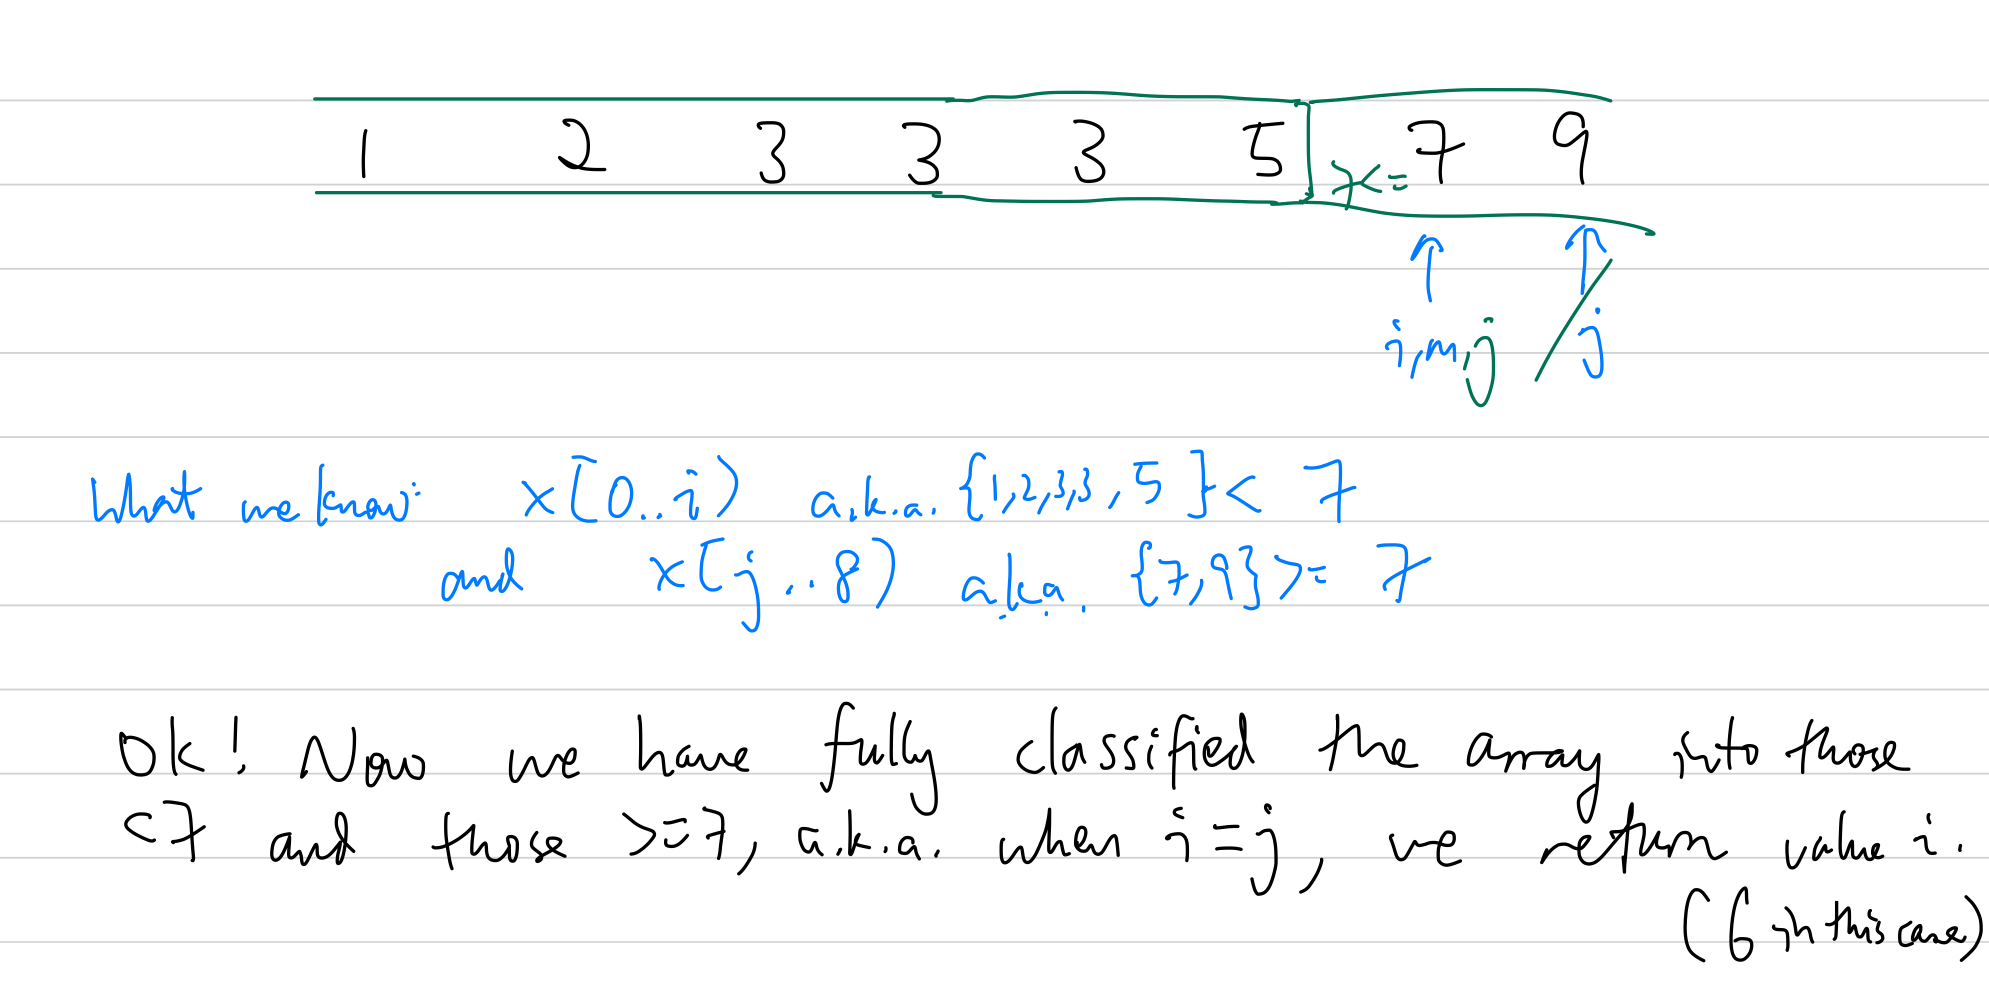 1 2 3 3 3 5 x<= 7 9
i,m,j j
What we know: x[0..i) a.k.a. {1,2,3,3,5} < 7
and x[j..8) a.k.a. {7,9} >= 7
Ok! Now we have fully classified the array into those
<7 and those >=7, a.k.a. when i=j, we return value i.
(6 in this case)